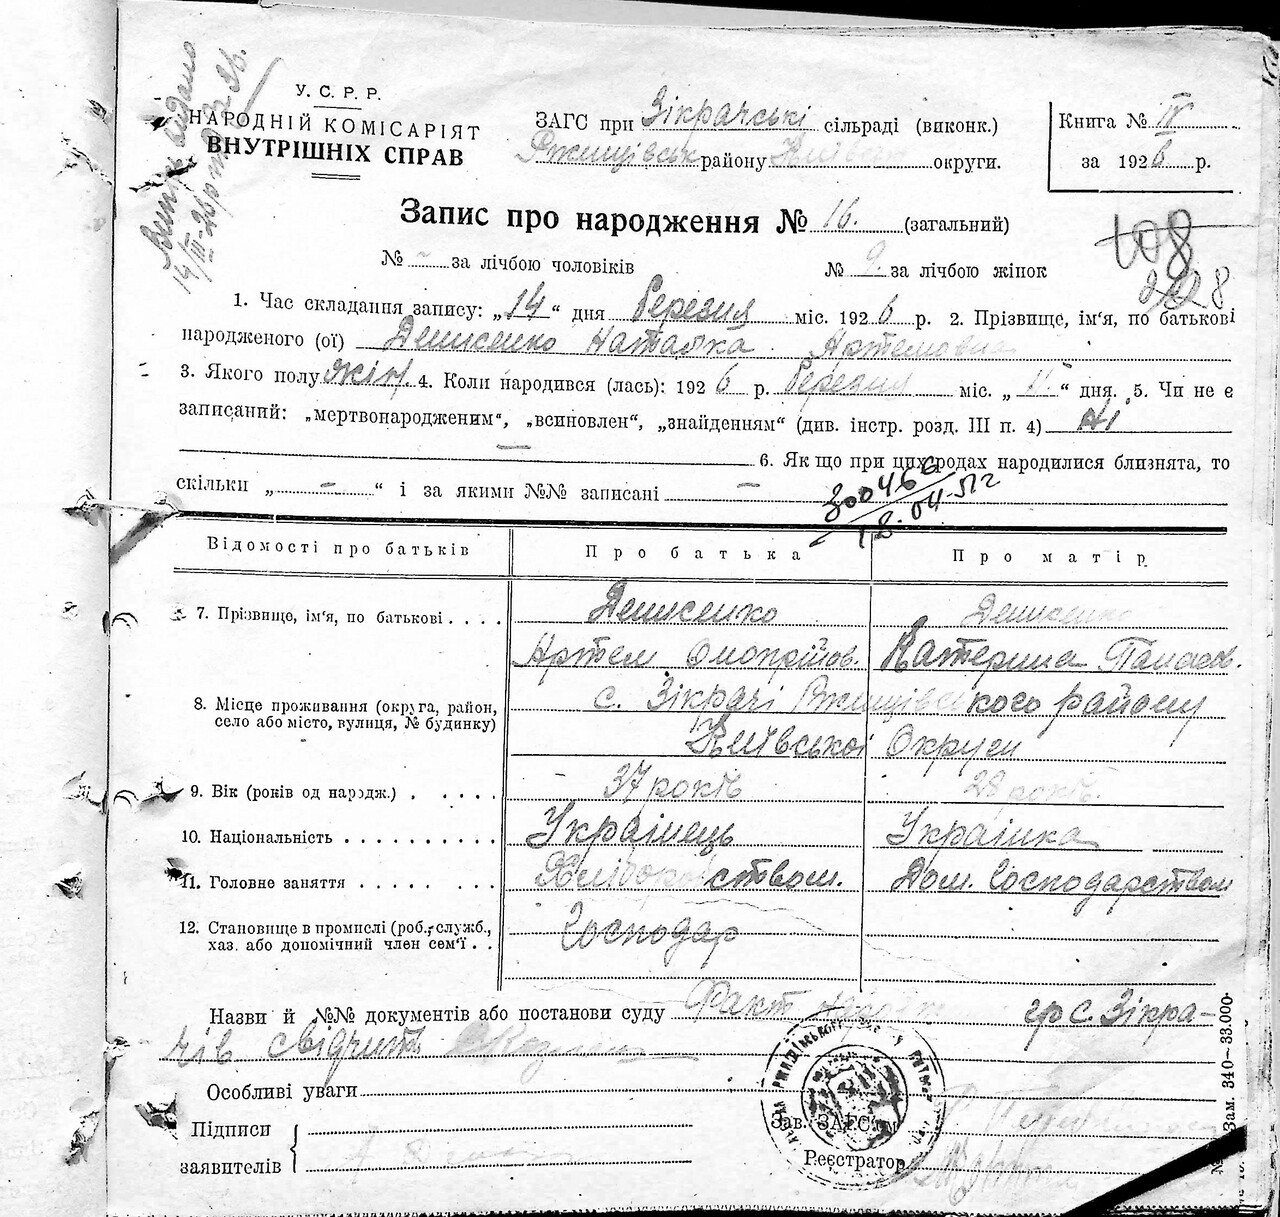 У. С. Р. Р.
НАРОДНІЙ КОМІСАРІЯТ
ВНУТРІШНІХ СПРАВ
ЗАГС при Зікрачські сільраді (виконк.)
Ржищівськ району Київськ округи.
Книга № IV
за 1926 р.
Запис про народження № 16. (загальний)
№ - за лічбою чоловіків № 9. за лічбою жінок
108
1. Час складання запису: „14“ дня березня міс. 1926 р. 2. Прізвище, ім'я, по батькові
народженого (ої) Денисенко Наталка Артемовна
3. Якого полу жін. 4. Коли народився (лась): 1926 р. березня міс. „ “ дня. 5. Чи не є
записаний: „мертвонародженим“, „всиновлен“, „знайденням“ (див. інстр. розд. III п. 4) ні
6. Якщо при цих родах народилися близнята, то
скільки „ - “ і за якими №№ записані -
300466
18.04.51г
Відомості про батьків Про батька Про матір
7. Прізвище, ім'я, по батькові . . . . Денисенко Денисенко
Артем Онопрійов. Катерина Панасов.
8. Місце проживання (округа, район, с. Зікрачі Ржищівського району
село або місто, вулиця, № будинку) Київської Округи
9. Вік (років од народж.) . . . . . 37 років 28 років.
10. Національність . . . . . . . . . . Українець Українка
11. Головне заняття . . . . . . . . Хліборобством. Дом. Господарством
12. Становище в промислі (роб., служб., Господар
хаз. або допомічний член сем'ї . .
Назви й №№ документів або постанови суду Факт гр с. Зікра-
чів свідчить
Особливі уваги
Підписи
заявителів
Зав. ЗАГС'ом
Реєстратор
Зам. 340—33.000